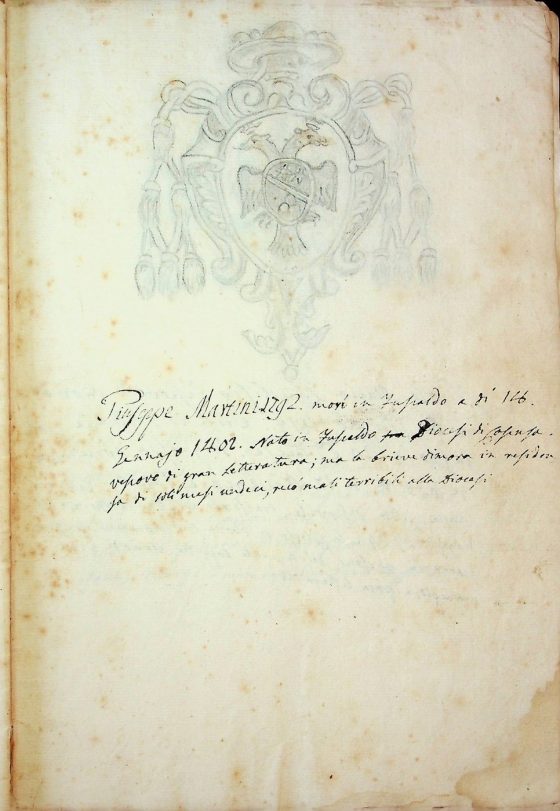 Giuseppe Martini 1792. morì in Fuscaldo a dì 16.
Gennajo 1802. Nato in Fuscaldo Diocesi di Cosenza.
vescovo di gran letteratura; ma la brieve dimora in residen
za di soli mesi undeci, recò mali terribili alla Diocesi